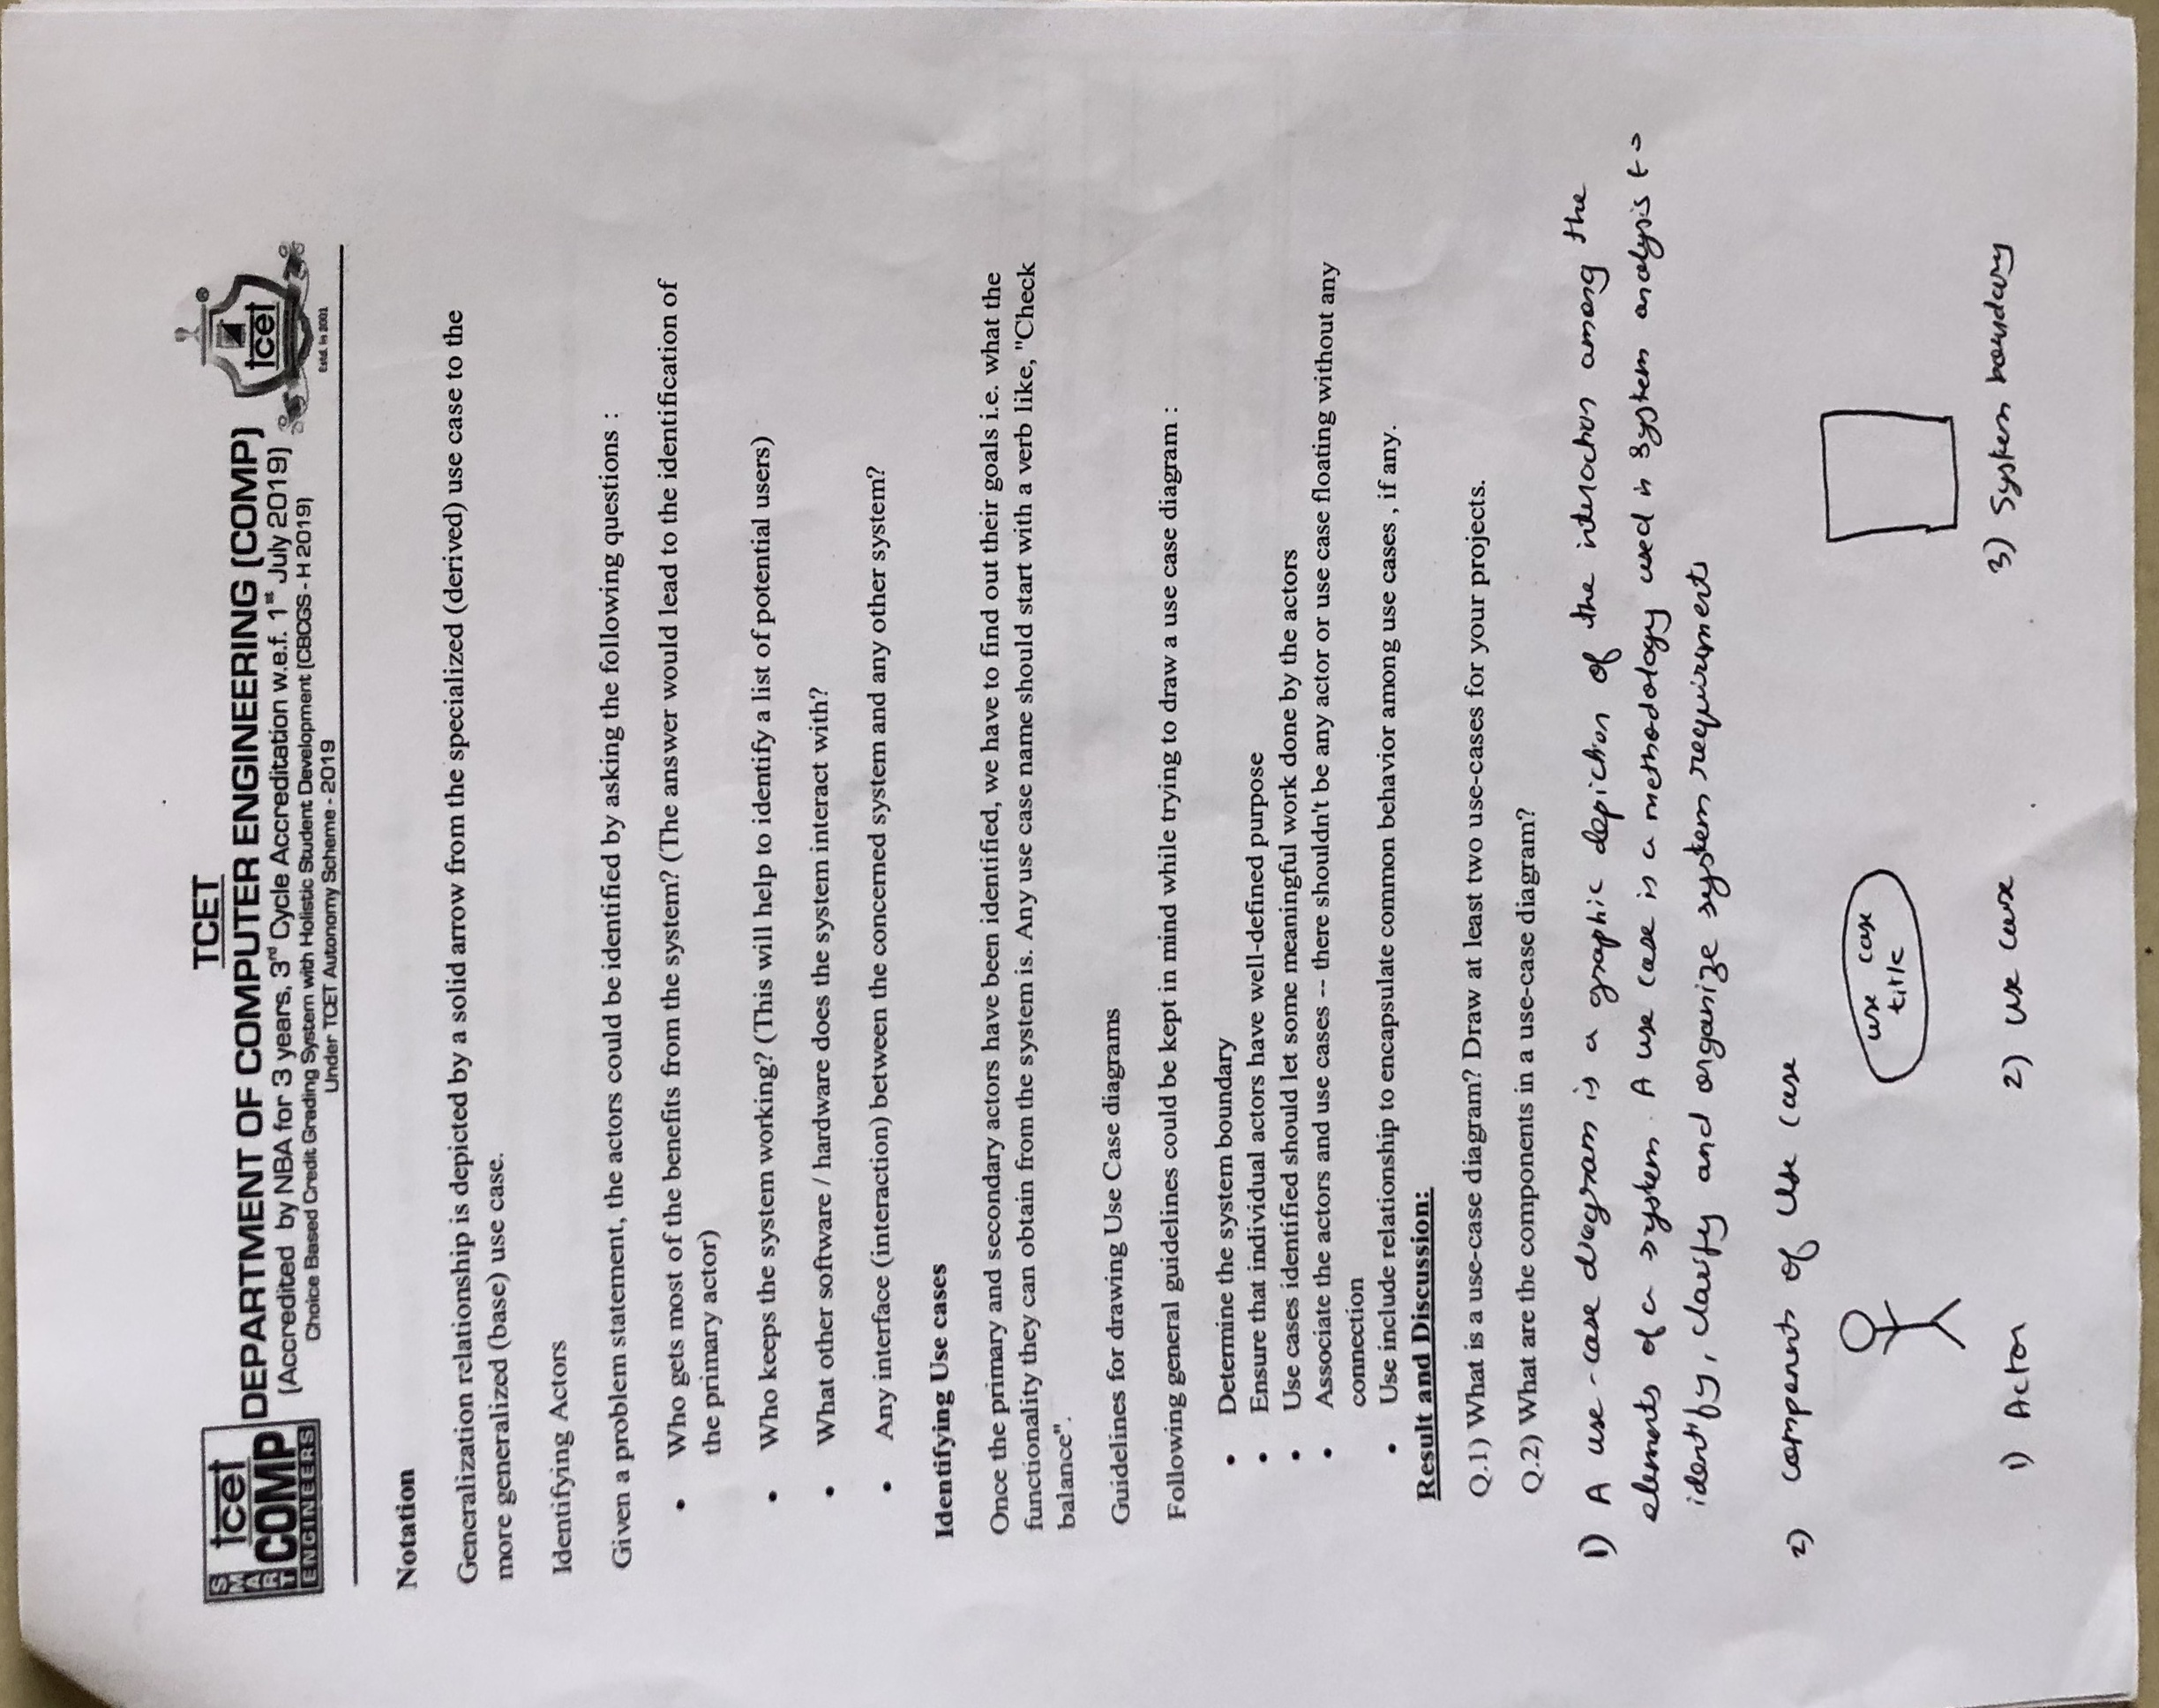 TCET
DEPARTMENT OF COMPUTER ENGINEERING (COMP)
(Accredited by NBA for 3 years, 3rd Cycle Accreditation w.e.f. 1st July 2019)
Choice Based Credit Grading System with Holistic Student Development (CBCGS - H 2019)
Under TCET Autonomy Scheme - 2019
SMART
tcet
COMP
ENGINEERS
tcet
®
Estd. in 2001
Notation
Generalization relationship is depicted by a solid arrow from the specialized (derived) use case to the
more generalized (base) use case.
Identifying Actors
Given a problem statement, the actors could be identified by asking the following questions :
• Who gets most of the benefits from the system? (The answer would lead to the identification of
the primary actor)
• Who keeps the system working? (This will help to identify a list of potential users)
• What other software / hardware does the system interact with?
• Any interface (interaction) between the concerned system and any other system?
Identifying Use cases
Once the primary and secondary actors have been identified, we have to find out their goals i.e. what the
functionality they can obtain from the system is. Any use case name should start with a verb like, "Check
balance".
Guidelines for drawing Use Case diagrams
Following general guidelines could be kept in mind while trying to draw a use case diagram :
• Determine the system boundary
• Ensure that individual actors have well-defined purpose
• Use cases identified should let some meaningful work done by the actors
• Associate the actors and use cases -- there shouldn't be any actor or use case floating without any
connection
• Use include relationship to encapsulate common behavior among use cases , if any.
Result and Discussion:
Q.1) What is a use-case diagram? Draw at least two use-cases for your projects.
Q.2) What are the components in a use-case diagram?
1) A use-case diagram is a graphic depiction of the interaction among the
elements of a system. A use case is a methodology used in system analysis to
identify, clarify and organize system requirements
2) components of Use case
use case
title
1) Actor 2) use case 3) System boundary